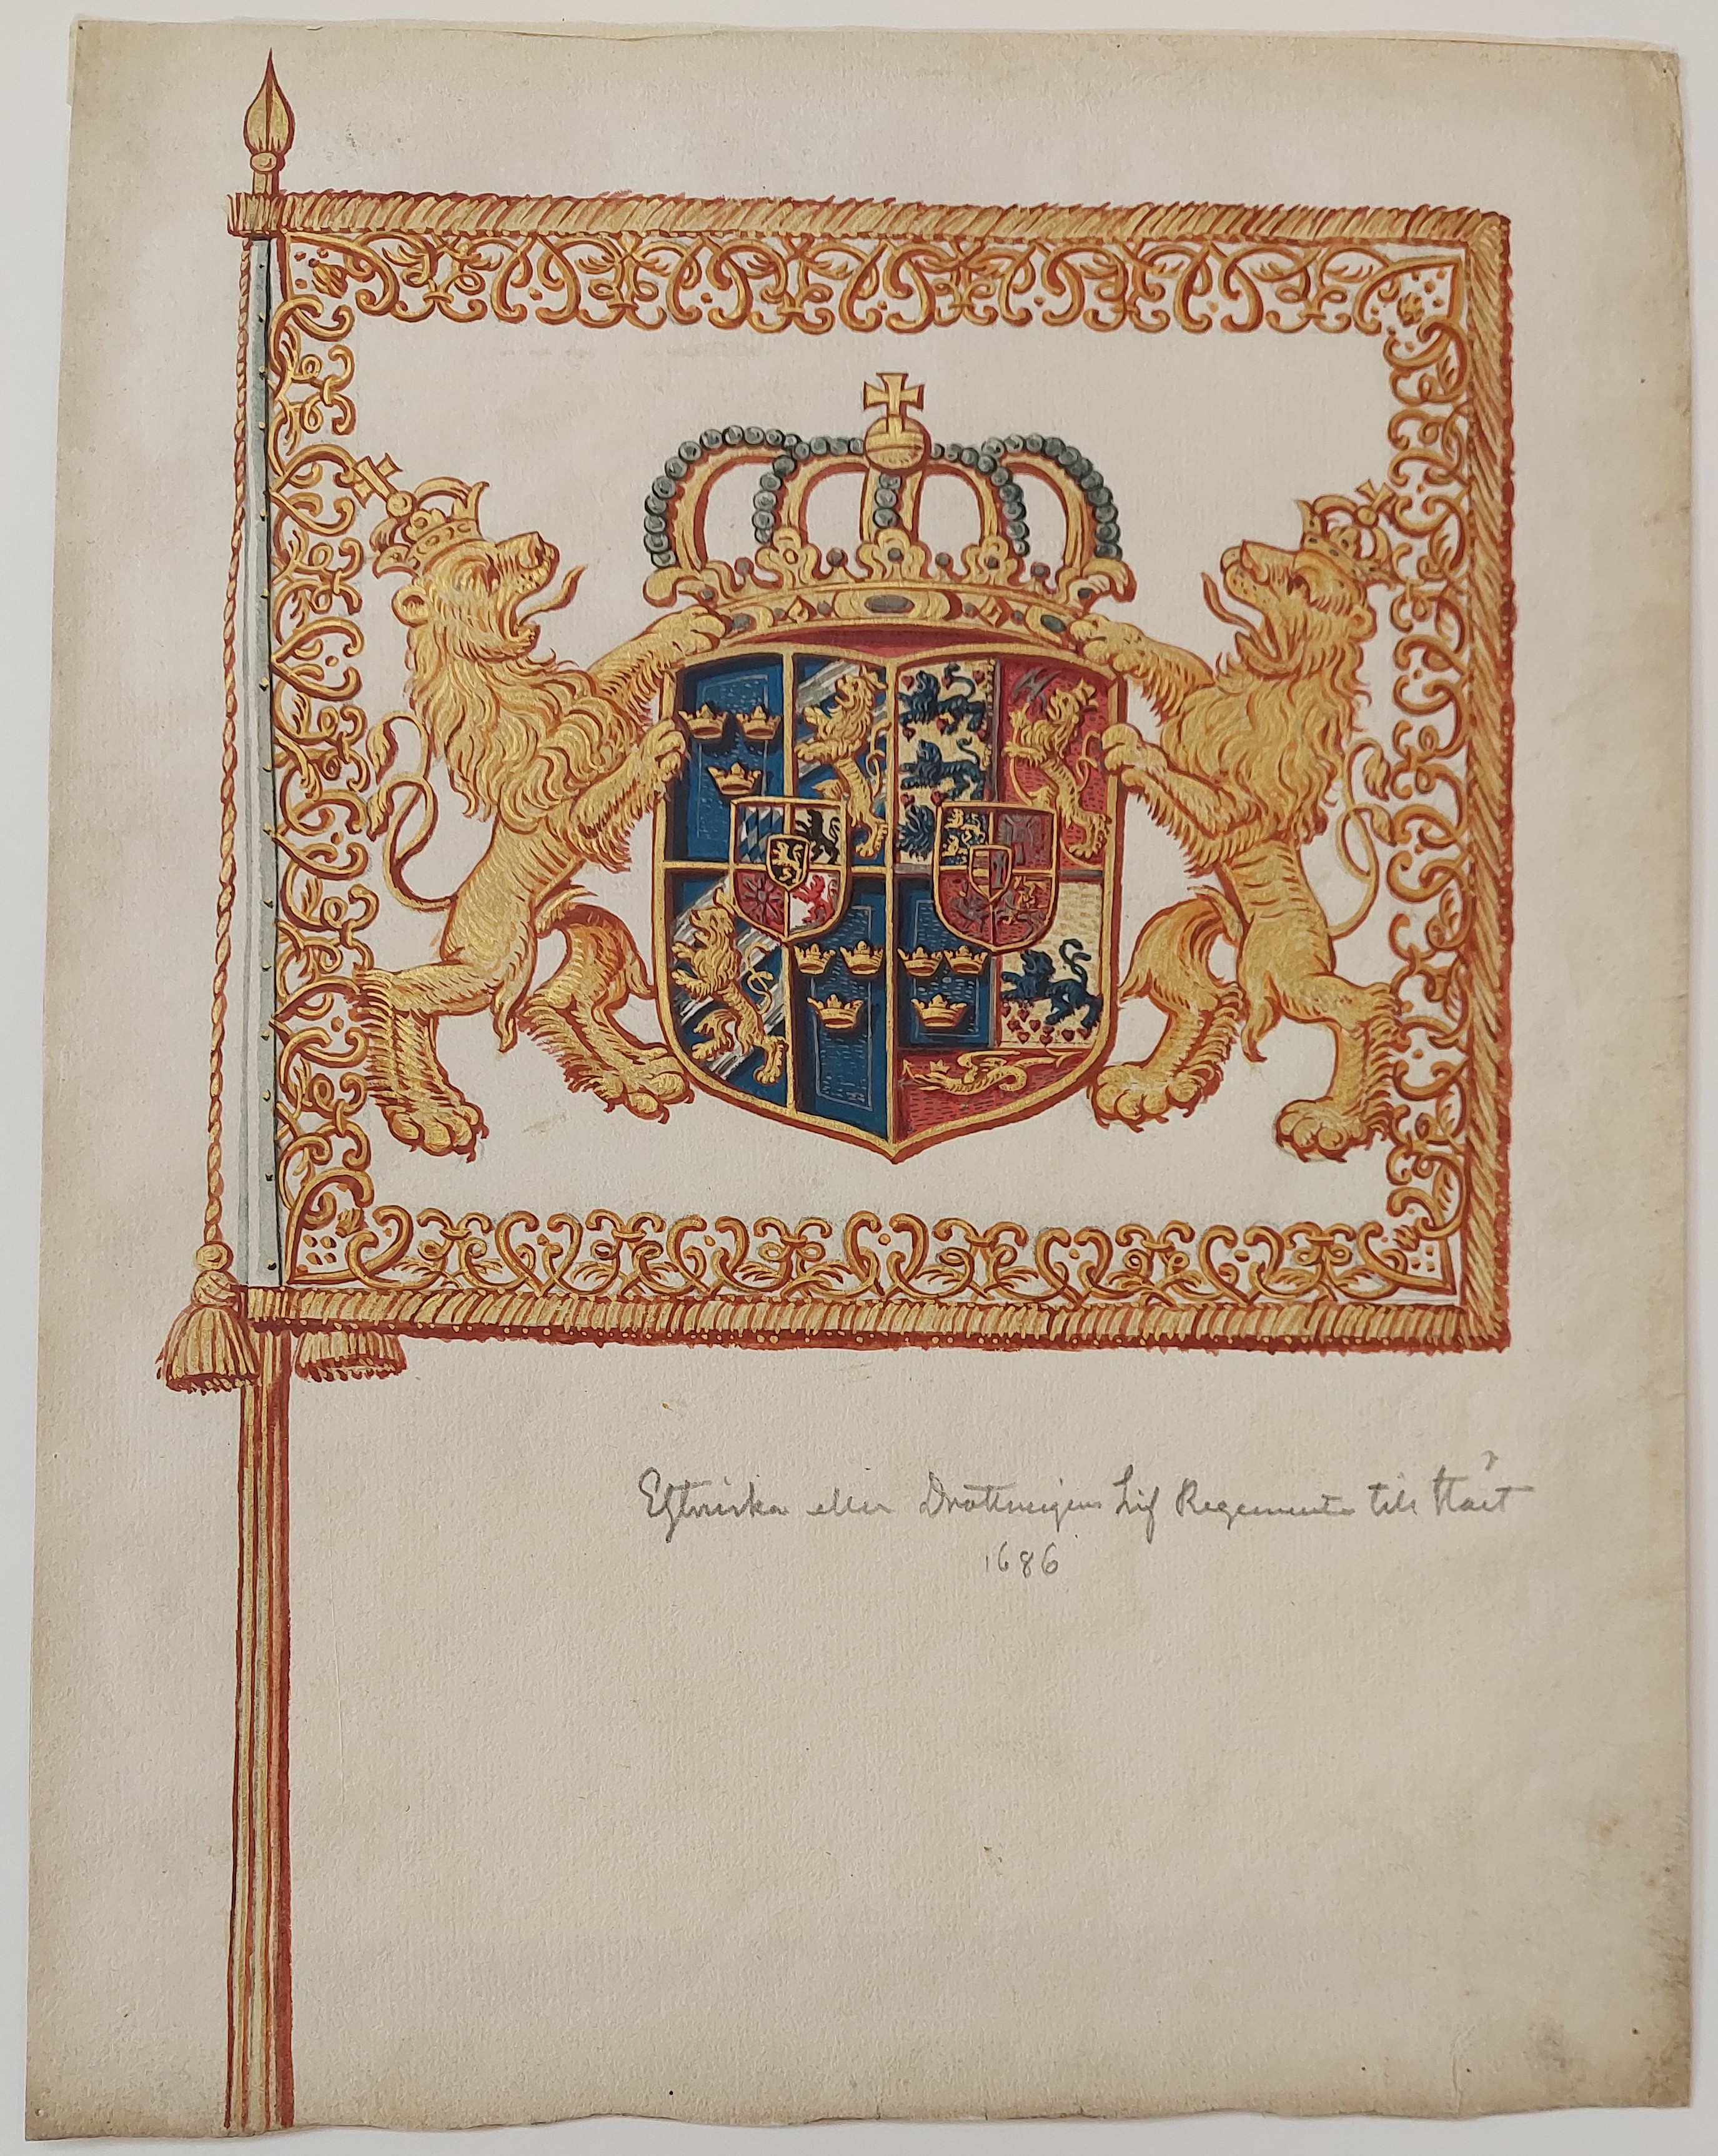 Estniska eller Drottningens Lif Regemente till häst
1686